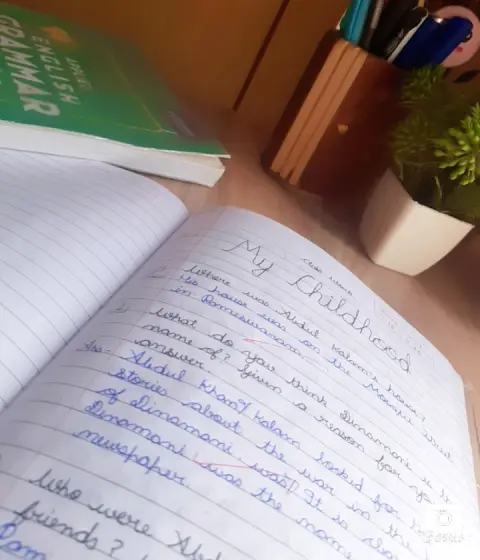 ENGLISH
GRAMMAR
Class Work
My Childhood
Where was Abdul Kalam's house?
His house was on the Mosque street
in Rameswaram.
What do you think Dinamani is the
name of? Given a reason for you
answer
Ans- Abdul Kalam looked for the
stories about the war in the
of Dinamani was It is
Dinamani was the name
newspaper
Who were Abdul
friends?
Ram